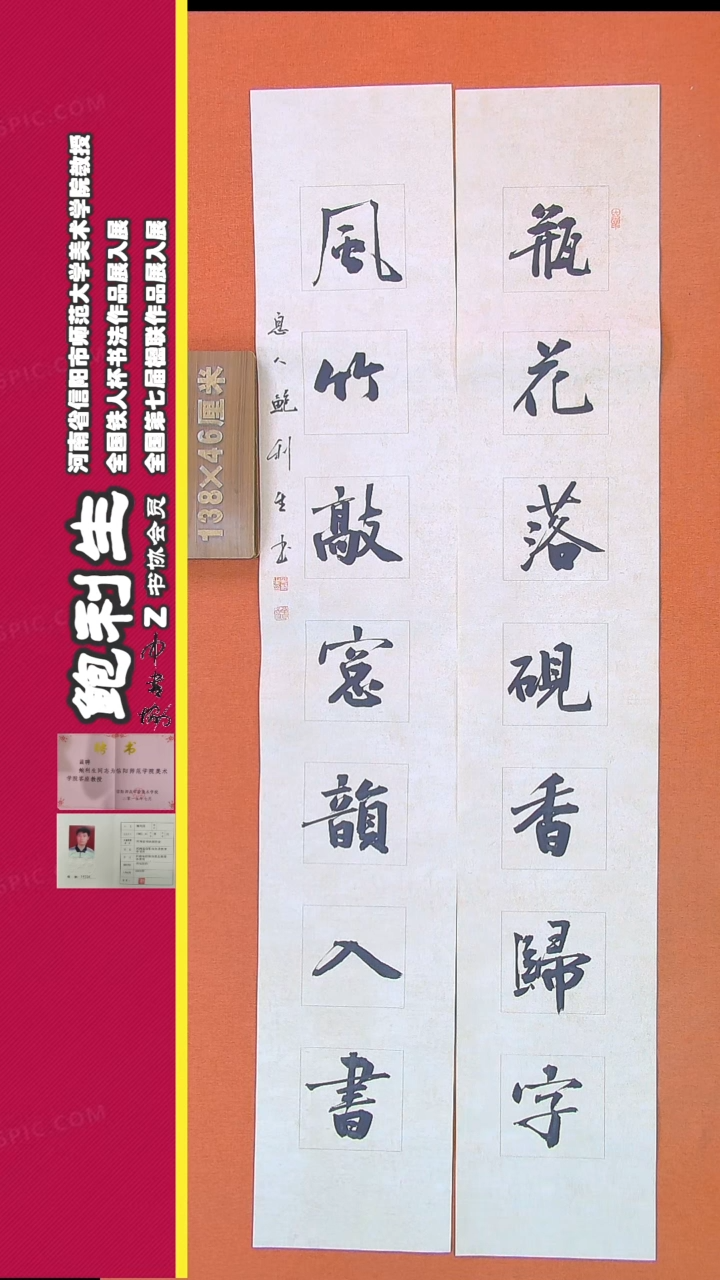 瓶花落硯香歸字
風竹敲窓韻入書
息人鮑利生书
138×46厘米
河南省信阳市师范大学美术学院教授
全国铁人杯书法作品展入展
全国第七届楹联作品展入展
鲍利生
Z书协会员
聘书